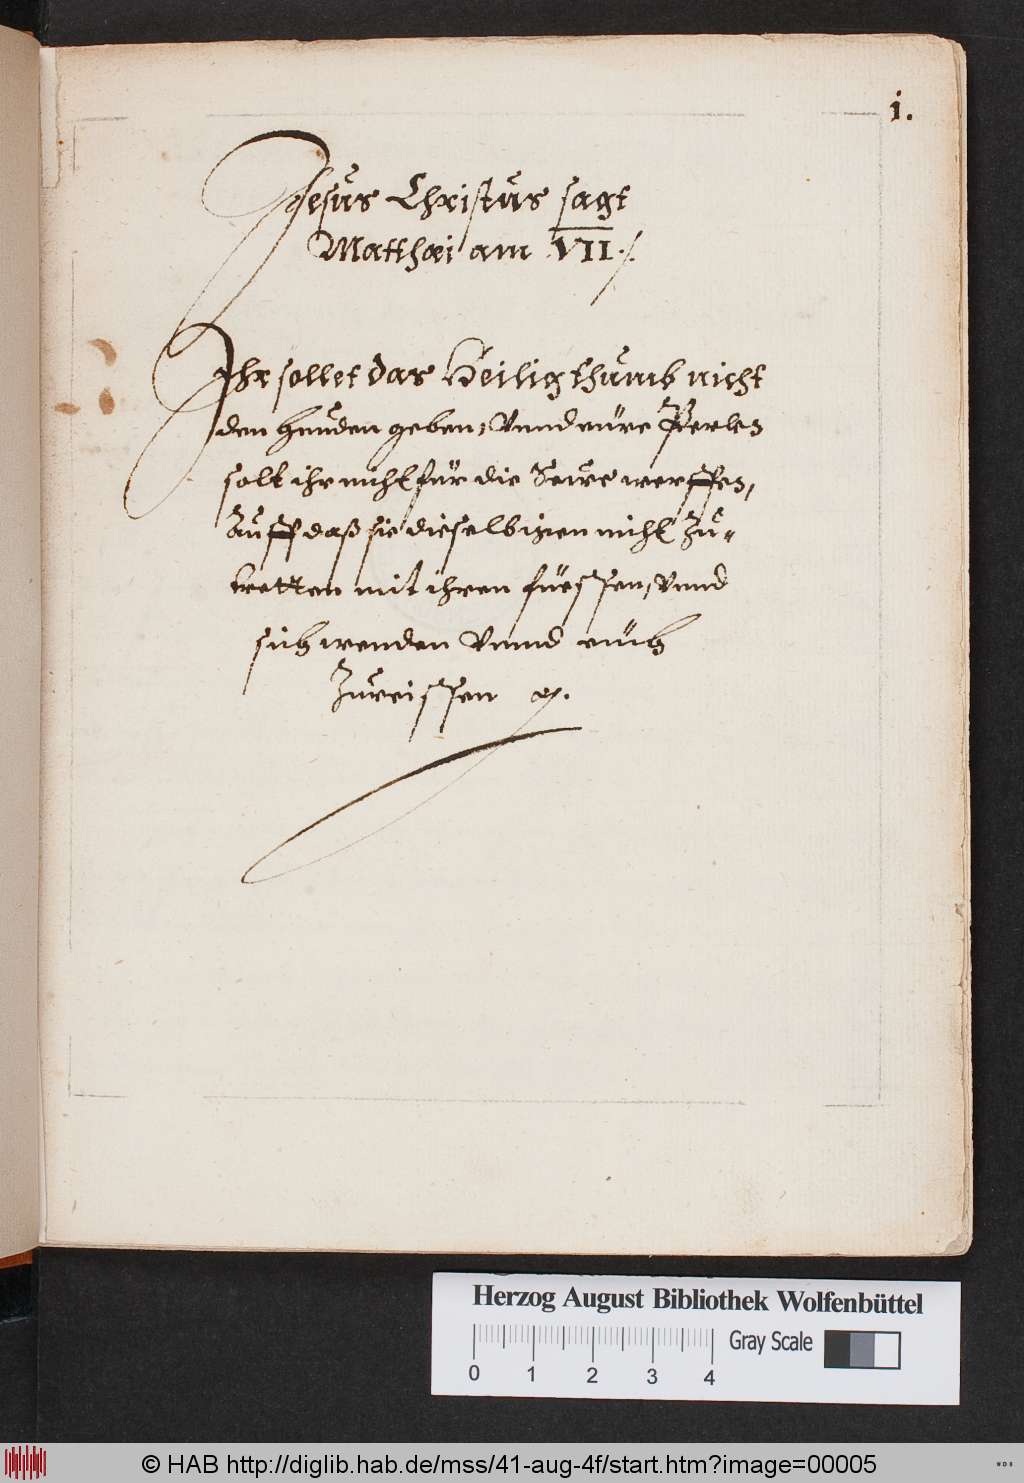 i.
Jesus Christus sagt
Matthæi am VII ./.
Ihr sollet das Heiligthumb nicht
den hunden geben, Vnnd eure Perlen
solt ihr nicht für die Sewe werffen,
Auff daß sie dieselbigen nicht Zu-
tretten mit ihren füessen, Vnnd
sich wenden Vnnd euch
Zureissen
Herzog August Bibliothek Wolfenbüttel
Gray Scale
0 1 2 3 4
© HAB http://diglib.hab.de/mss/41-aug-4f/start.htm?image=00005
WDB